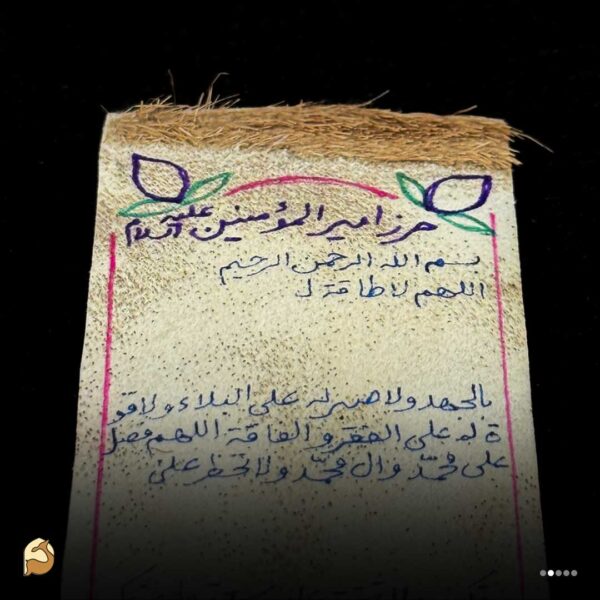 حرز امیر المؤمنین علیه السلام
بسم الله الرحمن الرحیم
اللهم لا طاقة ل
بالجهد ولا صبر له علی البلاء ولا قو
ة له علی الفقر و الفاقة اللهم فصل
علی محمّد وال محمّد ولا تحظر علیّ